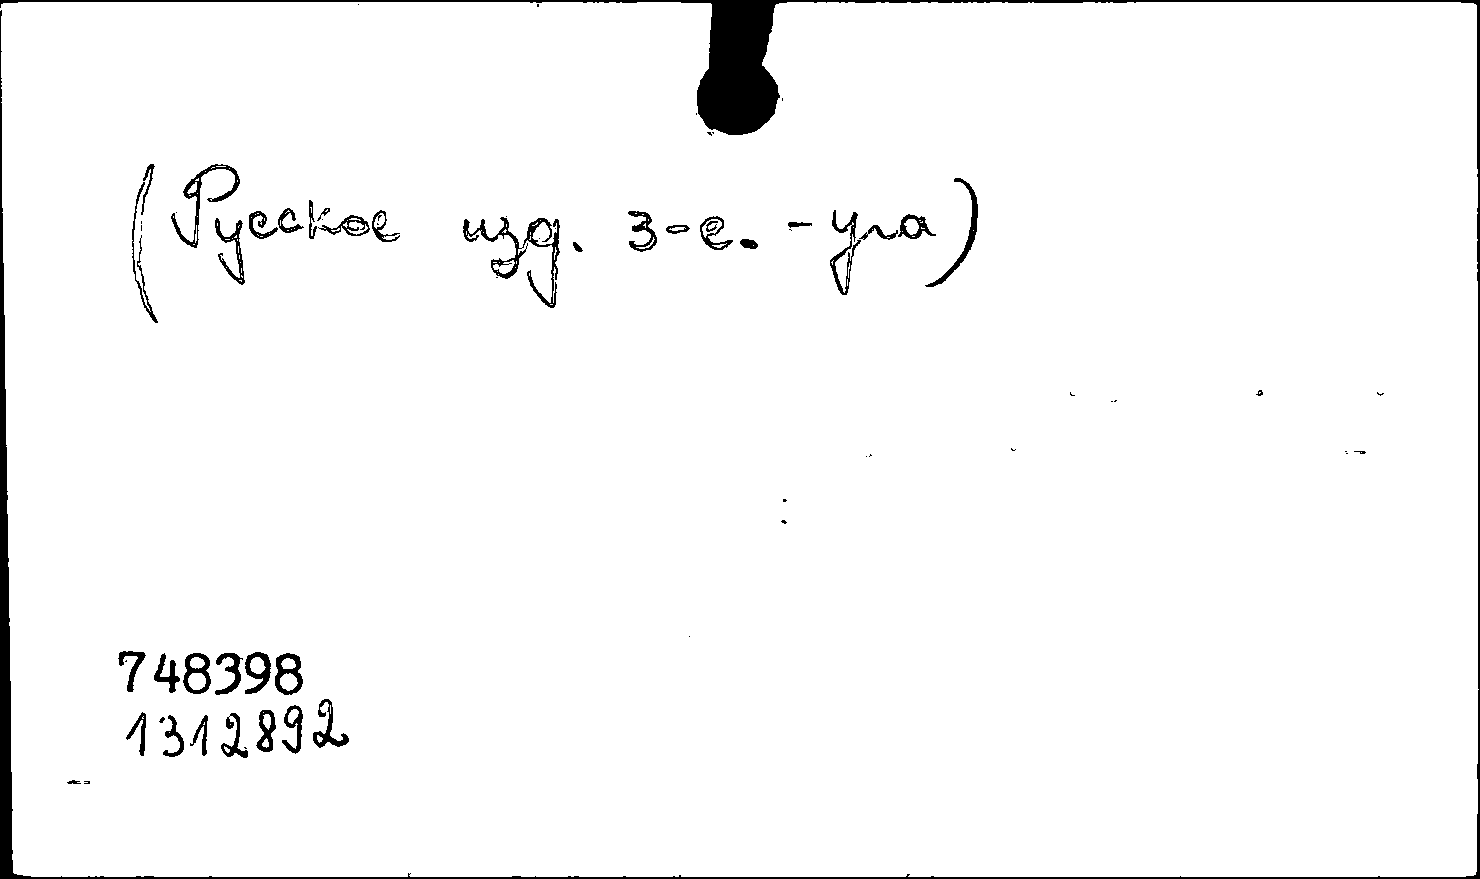 (Русское изд. 3-е. - ула)
748398
1312892